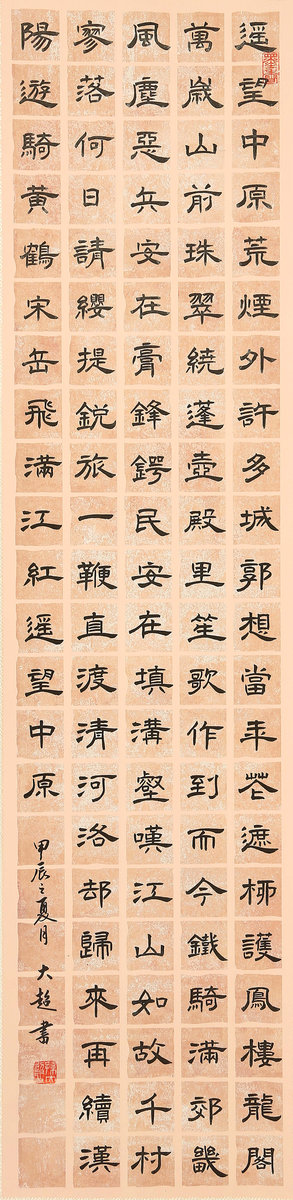 遥望中原荒煙外許多城郭想當年花遮柳護鳳樓龍閣
萬歲山前珠翠繞蓬壺殿里笙歌作到而今鐵騎滿郊畿
風塵惡兵安在膏鋒鍔民安在填溝壑嘆江山如故千村
寥落何日請纓提鋭旅一鞭直渡清河洛却歸來再續漢
陽遊騎黃鶴宋岳飛滿江紅遥望中原
甲辰之夏月大超書